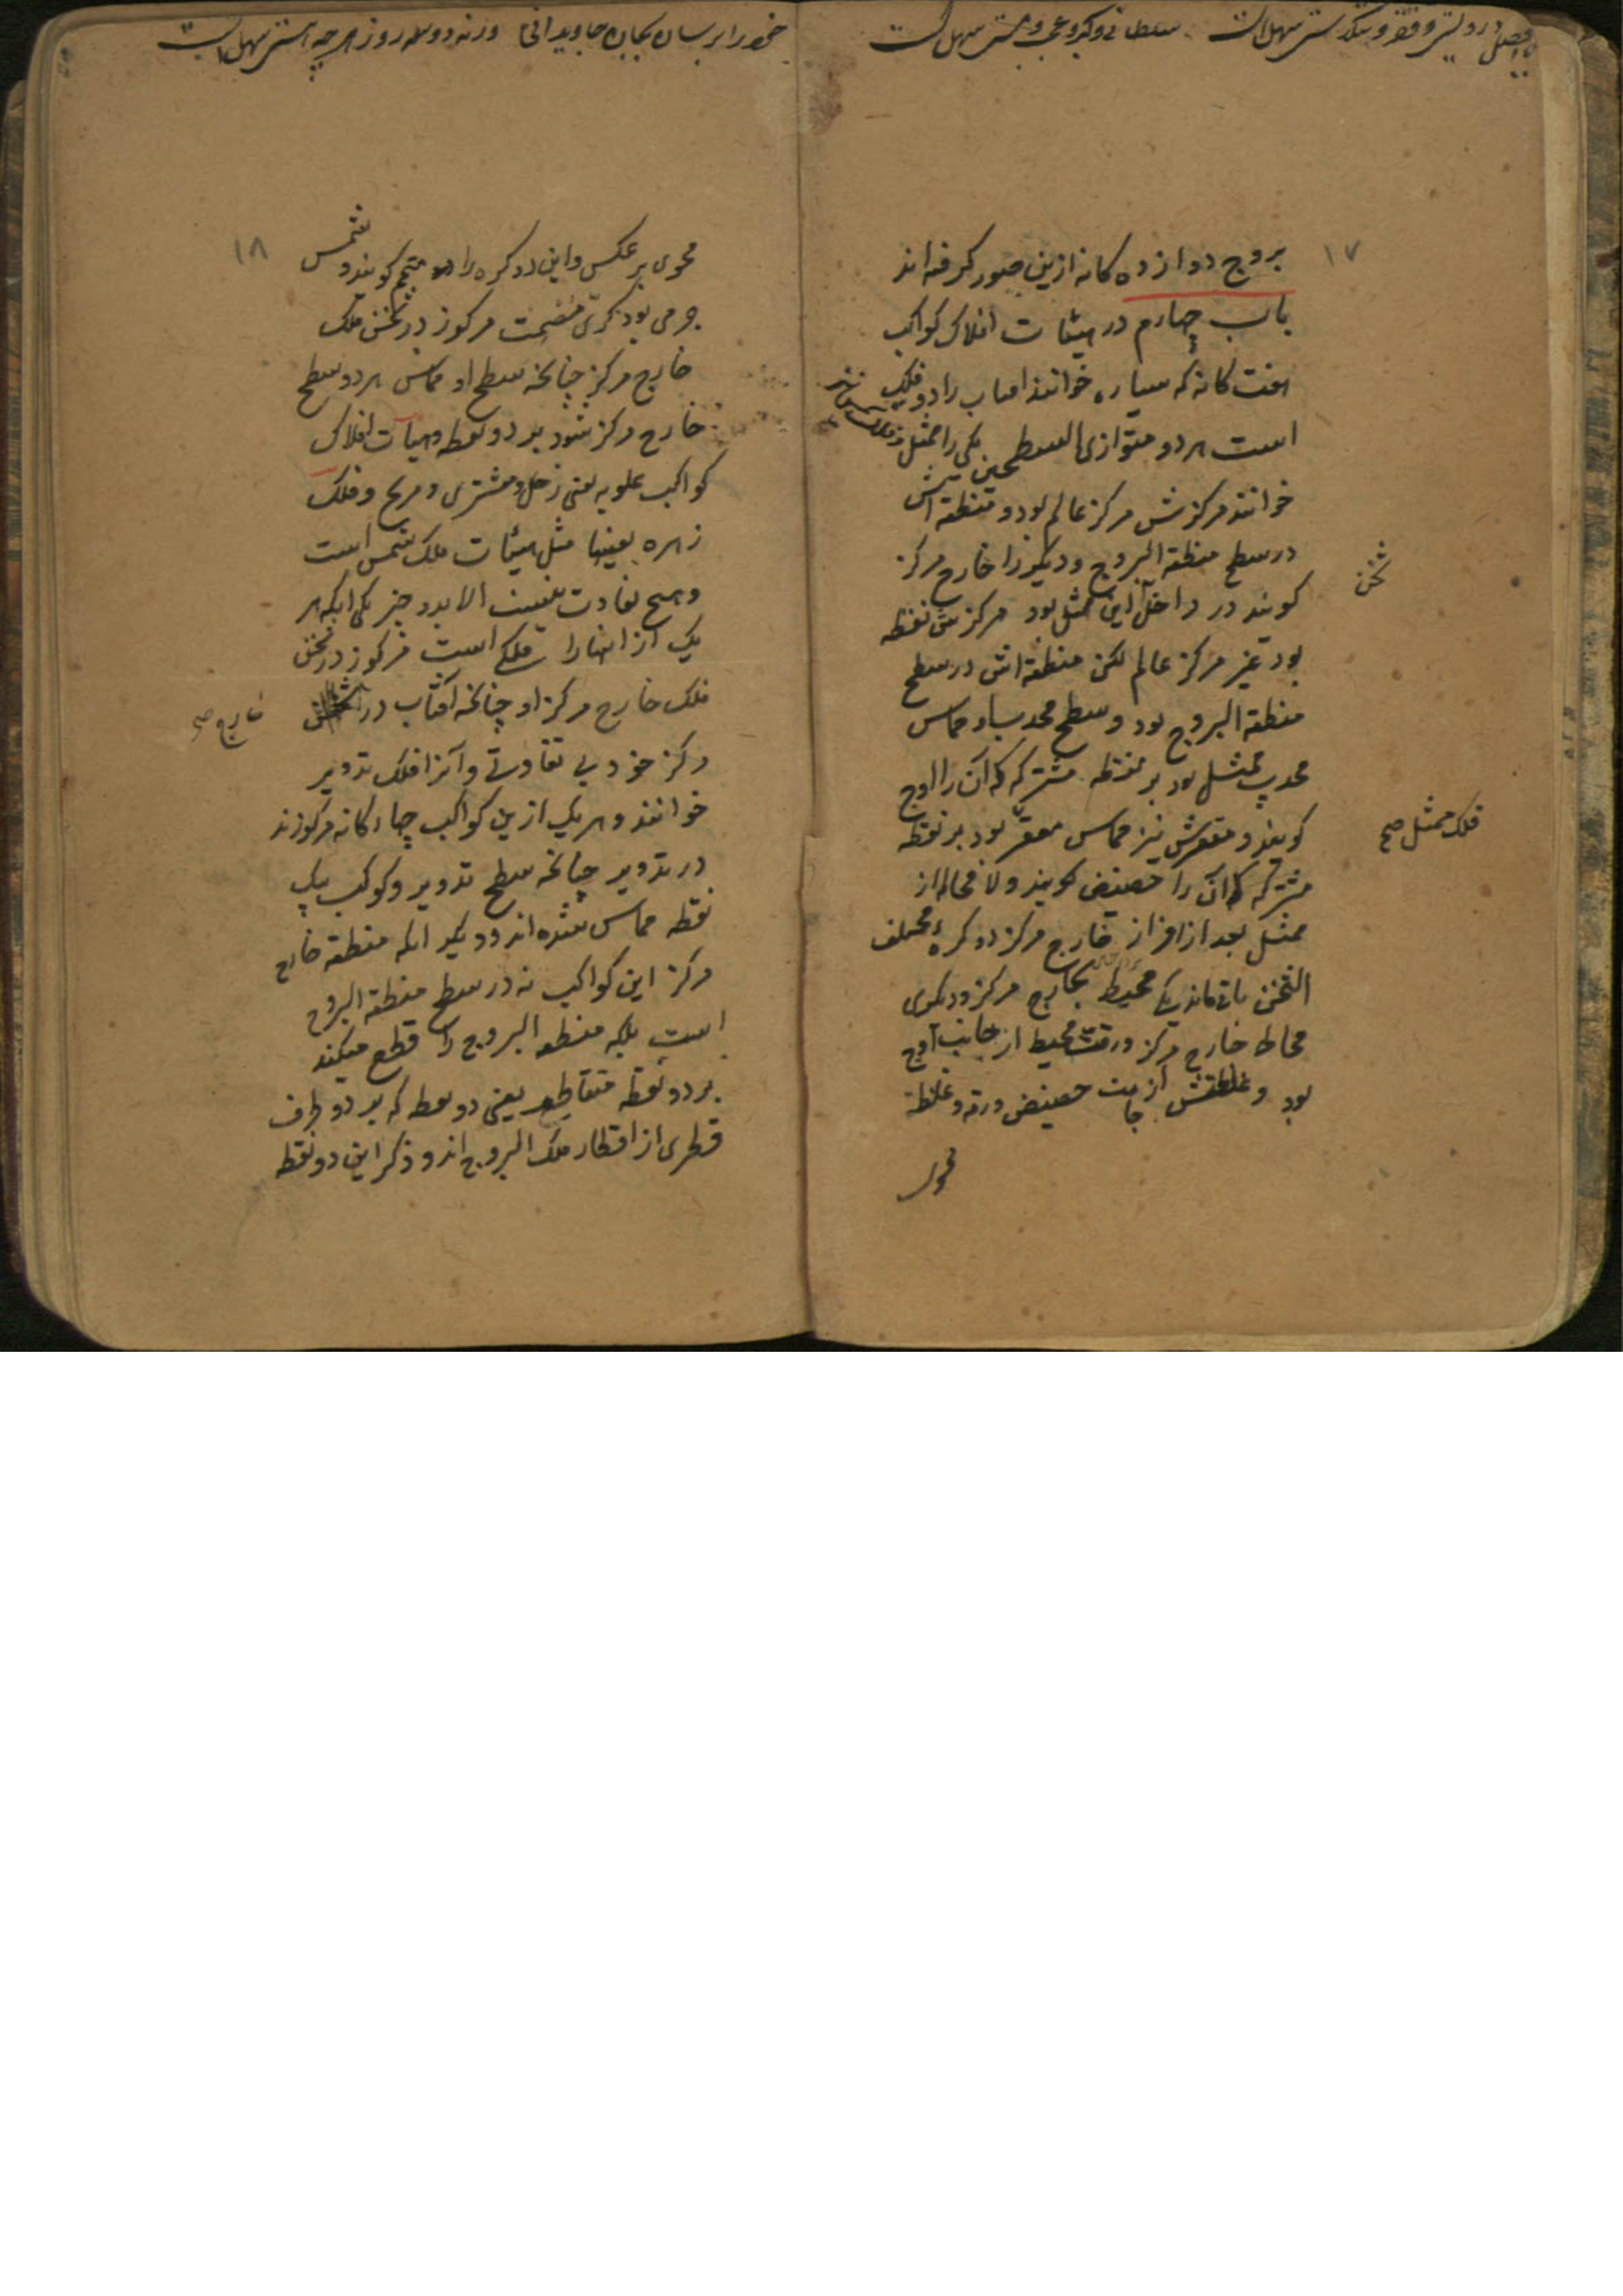 وصل و درویشی و فقر و تنگدستی سهل است
خود را برسان بجان جاویدانی ورنه دو سه روز هر چه هستی سهل است
۱۷
بروج دوازده کانه ازین صور کرفته اند
باب چهارم در هیئات افلاک کواکب
هفت کانه که سیاره خوانند افتاب را دو فلک
است هر دو متوازی السطحین یکی را ممثل
خوانند مرکزش مرکز عالم بود و منطقه اش
در سطح منطقة البروج و دیکر را خارج مرکز
کویند در داخل این ممثل بود مرکزش نقطه
بود غیر مرکز عالم لکن منطقه اش در سطح
منطقة البروج بود و سطح محدب او مماس
محدب ممثل بود بر نقطه مشترکه که آن را اوج
کویند و مقعرش نیز مماس مقعر بود بر نقطه
مشترکه که آن را حضیض کویند و لا محاله از
ممثل بعد از افراز خارج مرکز دو کره مختلف
الثخن باقی ماند یکی محیط بخارج مرکز و دیکری
محاط خارج مرکز و رقت محیط از جانب اوج
بود و غلظتش از جانب حضیض و رقه و غلظة
محوی
ثخن
فلک ممثل صح
۱۸
محوی بر عکس و این دو کره را متمم کویند و شمس
جرمی بود کری مصمت مرکوز در ثخن فلک
خارج مرکز چنانچه سطح او مماس هر دو سطح
خارج مرکز شود بر دو نقطه و هیات افلاک
کواکب علویه یعنی زحل و مشتری و مریخ و فلک
زهره بعینها مثل هیئات فلک شمس است
و هیچ تفاوت نیست الا بدو چیز یکی انکه هر
یک از انها را فلکی است مرکوز در ثخن
فلک خارج مرکز او چنانچه آفتاب در
خارج صح
مرکز خود بی تفاوتی و آنرا فلک تدویر
خوانند و هر یک ازین کواکب چهار کانه مرکوزند
در تدویر چنانچه سطح تدویر و کوکب بیک
نقطه مماس شده اند و دیکر انکه منطقه خارج
مرکز این کواکب نه در سطح منطقة البروج
است بلکه منطقة البروج را قطع میکند
بر دو نقطه متقاطع یعنی دو نقطه که بر دو طرف
قطری از اقطار فلک البروج اند و ذکر این دو نقطه